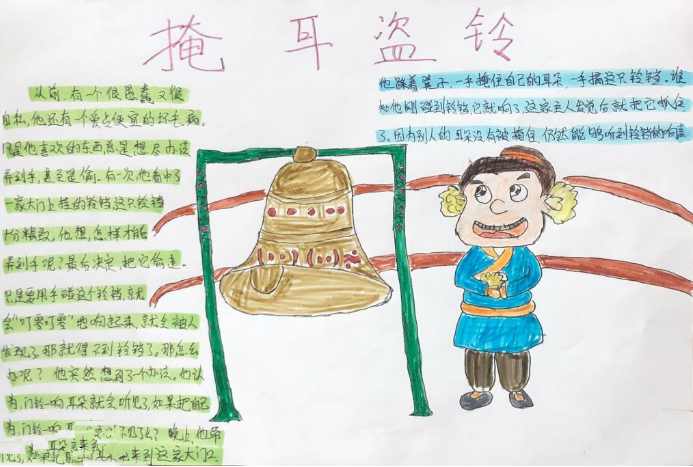 掩耳盗铃
从前,有一个很愚蠢又很
自私,他还有一个爱占便宜的坏毛病。
凡是他喜欢的东西总是想尽办法
弄到手,甚至是偷。有一次,他看中了
一家大门上挂的铃铛,这只铃铛
十分精致,他想,怎样才能
弄到手呢?最后决定,把它偷走。
只是要用手碰这个铃铛,就
会"叮零叮零"地响起来,就会被人
发现了,那就得不到铃铛了。那怎么
办呢?他突然想到了个办法。他认
为,门铃一响,耳朵就会听见了,如果把
为,门铃一响 耳 晚上,他
来到这家大门口
他踮着 一手掩住自己的耳朵,一手摘这只铃铛。谁
知他刚碰到铃铛,它就响了,这家主人发觉后,就把它抓住
了。因为别人的耳朵没有被掩住,仍然能够听到铃铛的响声